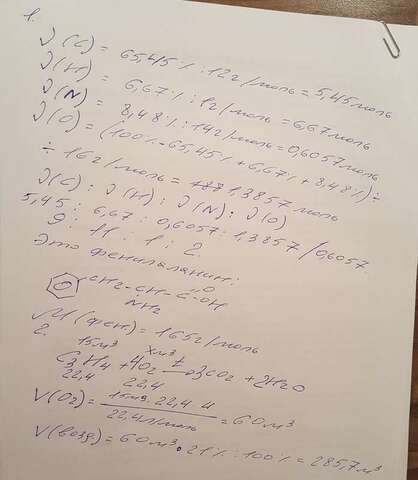 1.
ν(C) = 65,45% : 12г/моль = 5,45моль
ν(H) = 6,67% : 1г/моль = 6,67моль
ν(N) = 8,48% : 14г/моль = 0,6057моль
ν(O) = (100% - 65,45% + 6,67% + 8,48%) ÷
÷ 16г/моль = 1,3857 моль
ν(C) : ν(H) : ν(N) : ν(O)
5,45 : 6,67 : 0,6057 : 1,3857 /0,6057
9 : 11 : 1 : 2
Это фенилаланин:
O
CH2-CH-C-OH
NH2
M(фен) = 165г/моль
2.
15м³ xм³ t
C3H4 + 4O2 → 3CO2 + 2H2O
22,4 22,4
V(O2) = 15м³ · 22,4 · 4 / 22,4л/моль = 60м³
V(возд) = 60м³ · 21% : 100% = 285,7м³